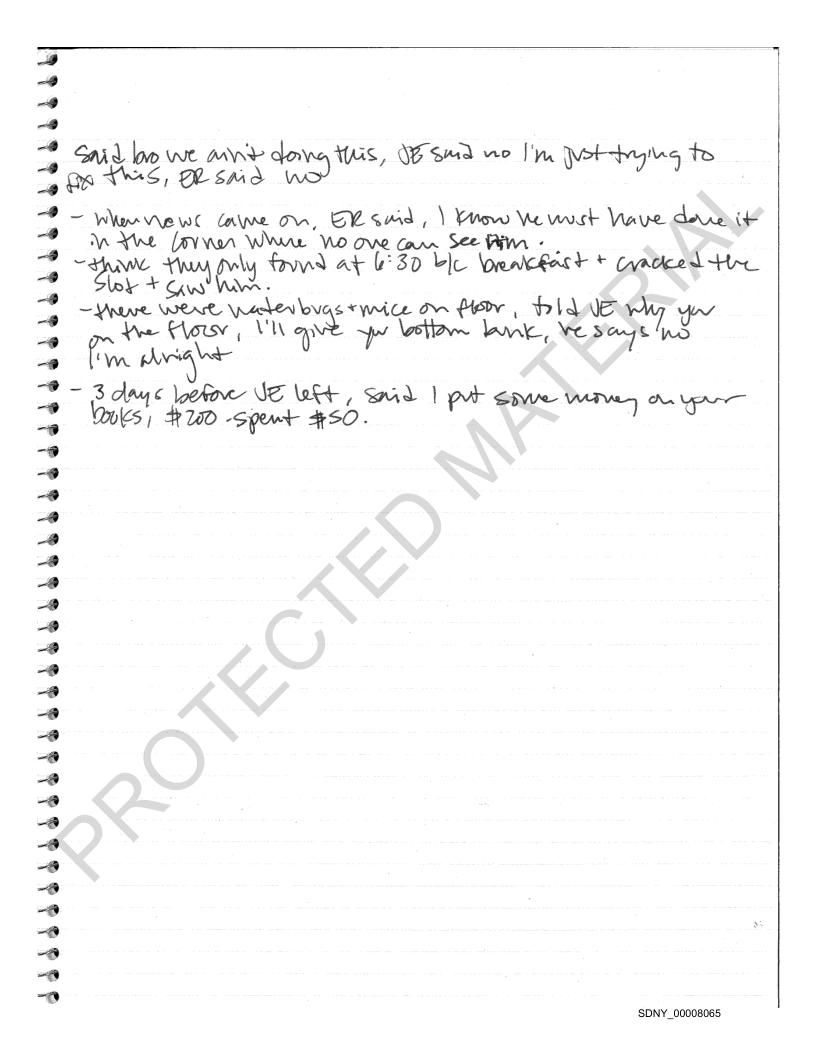 Said bro we ain't doing this, JE said no I'm just trying to
fix this, ER said no
- when news came on, ER said, I know he must have done it
in the corner where no one can see him.
- think they only found at 6:30 b/c breakfast + cracked the
slot + saw him.
- there were waterbugs + mice on floor, told JE why you
on the floor, I'll give you bottom bunk, he says no
I'm alright
- 3 days before JE left, said I put some money on your
books, $200 - spent $50.
PROTECTED MATERIAL
SDNY_00008065